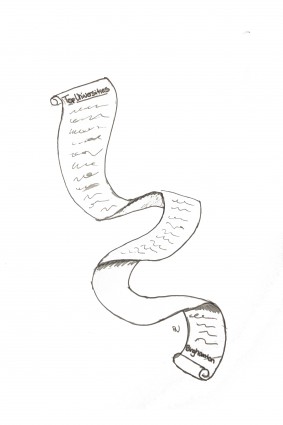 Top Universities
Binghamton